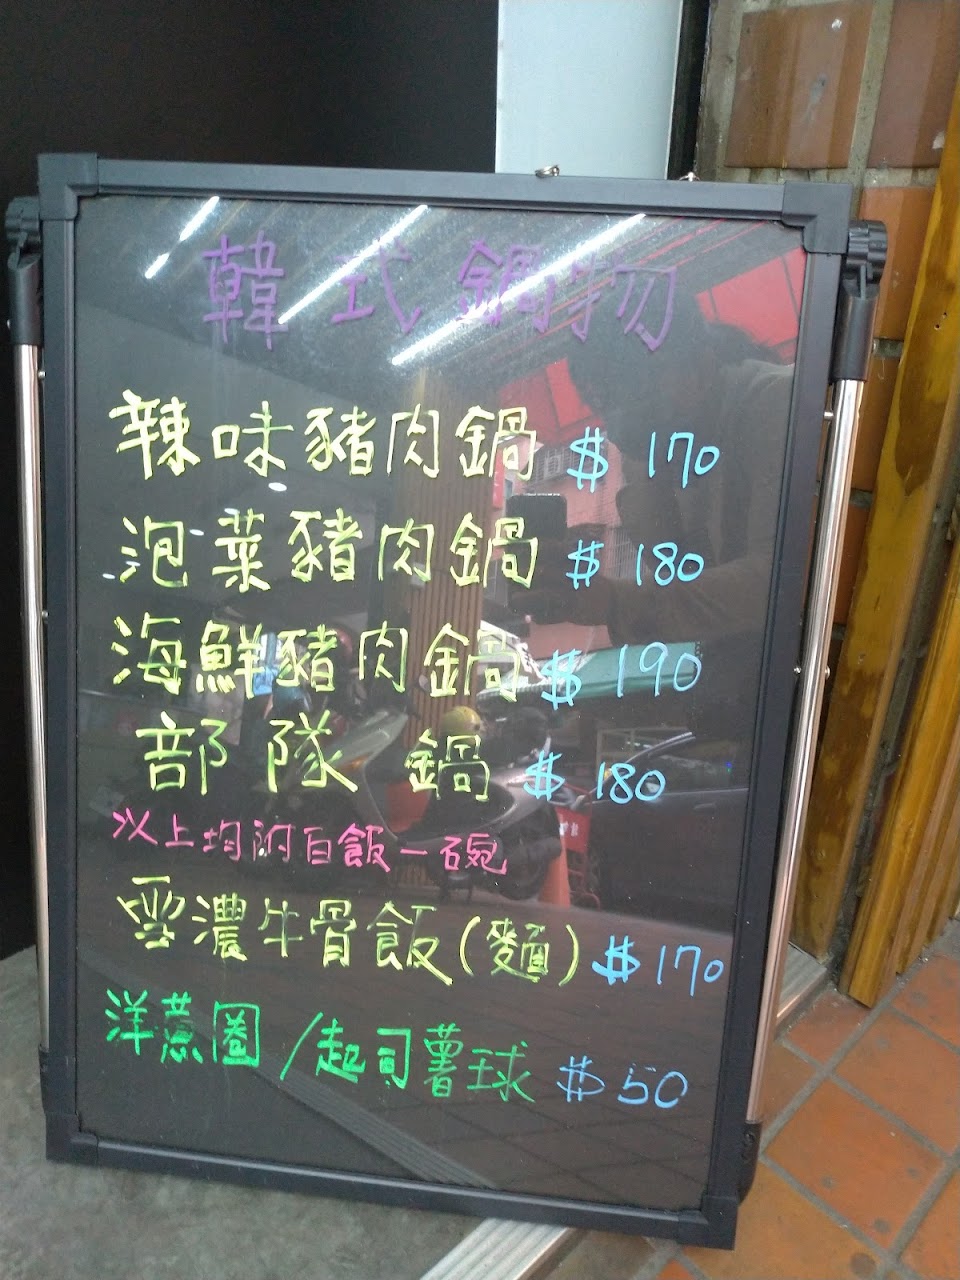 韓式鍋物
辣味豬肉鍋 $ 170
泡菜豬肉鍋 $ 180
海鮮豬肉鍋 $ 190
部隊鍋 $ 180
以上均附白飯一碗
雪濃牛骨飯(麵) $ 170
洋蔥圈/起司薯球 $ 50